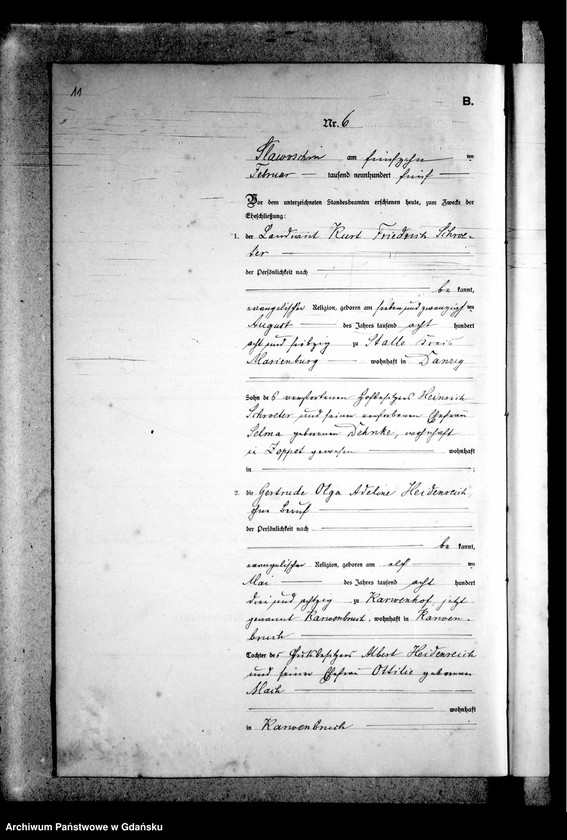 11
B.
Nr. 6
Slawoschin am fünfzehn ten
Februar tausend neunhundert fünf
Vor dem unterzeichneten Standesbeamten erschienen heute, zum Zwecke der
Eheschließung:
1. der Landwirt Kurt Friedrich Schroe-
ter
der Persönlichkeit nach
be kannt,
evangelischer Religion, geboren am sieben und zwanzigs ten
August des Jahres tausend acht hundert
acht und siebzig zu Stalle Kreis
Marienburg wohnhaft in Danzig
Sohn des verstorbenen Hofbesitzers Heinrich
Schroeter und seiner verstorbenen Ehefrau
Selma geborenen Dehnke, wohnhaft
in Zoppot gewesen wohnhaft
in
2. die Gertrude Olga Adeline Heidenreich
ohne Beruf
der Persönlichkeit nach
be kannt,
evangelischer Religion, geboren am elf ten
Mai des Jahres tausend acht hundert
drei und achtzig zu Karwenhof jetzt
genannt Karwenbruch, wohnhaft in Karwen-
bruch
Tochter des Gutsbesitzers Albert Heidenreich
und seiner Ehefrau Ottilie geborenen
Mach
wohnhaft
in Karwenbruch
Archiwum Państwowe w Gdańsku